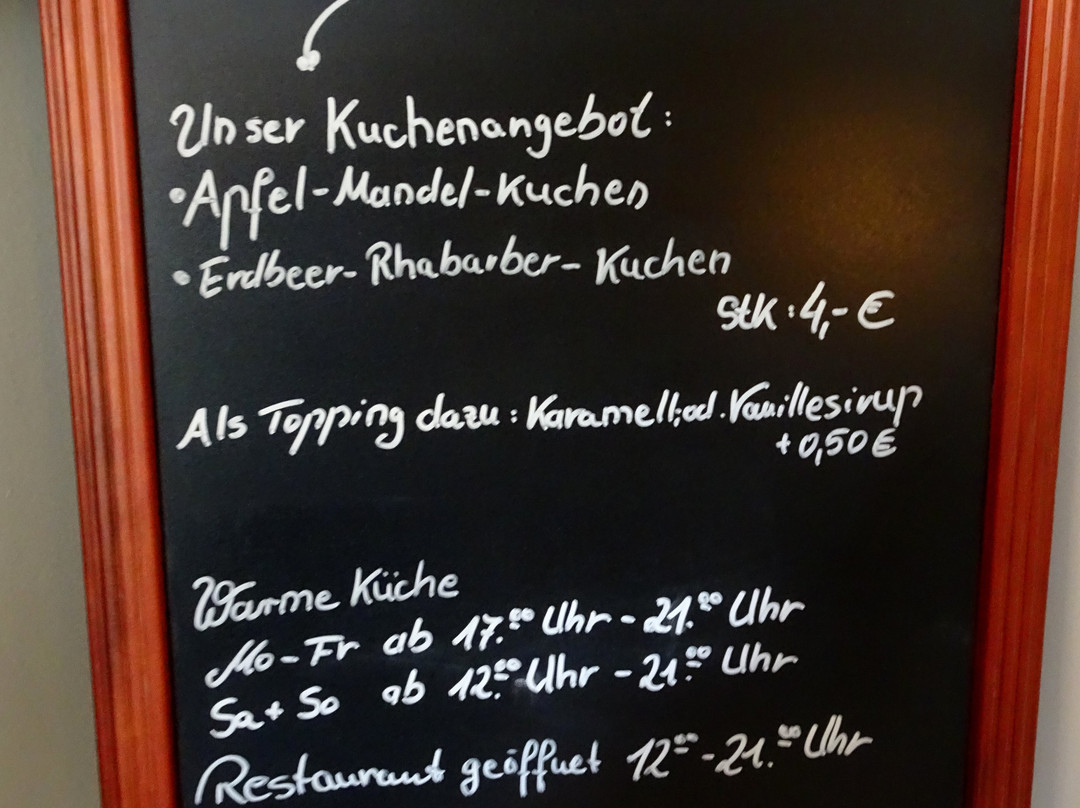 Unser Kuchenangebot:
• Apfel-Mandel-Kuchen
• Erdbeer-Rhabarber-Kuchen
Stk: 4,- €
Als Topping dazu: Karamell- od. Vanillesirup
+ 0,50 €
Warme Küche
Mo-Fr ab 17.00 Uhr - 21.00 Uhr
Sa + So ab 12.00 Uhr - 21.00 Uhr
Restaurant geöffnet 12.00 - 21.00 Uhr